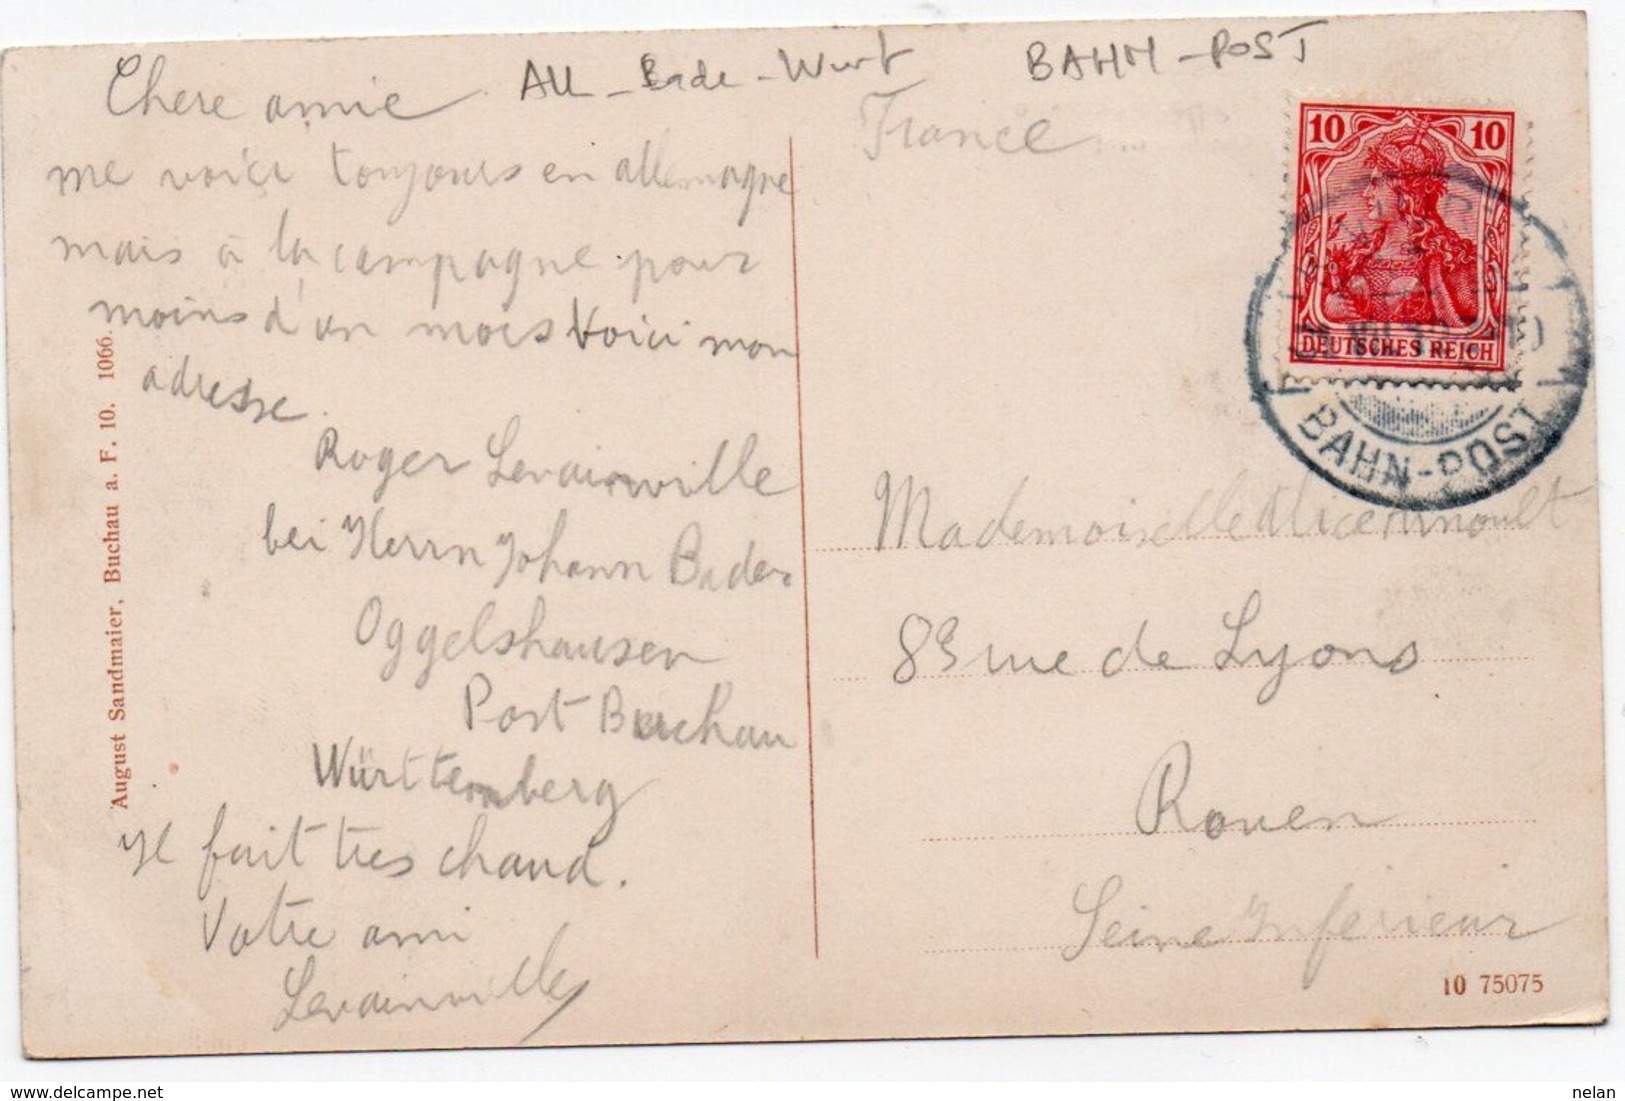 All - Bade - Wurt
BAHM - POST
Chere amie
me voici toujours en allemagne
mais à la campagne pour
moins d'un mois Voici mon
adresse.
Roger Levainville
bei Herrn Johann Bader
Oggelshausen
Post Buchau
Württemberg
Il fait tres chaud.
Votre ami
Levainville
August Sandmaier, Buchau a. F. 10. 1066.
France
10 10
DEUTSCHES REICH
BAHN-POST
Mademoiselle Alice Arnoult
83 rue de Lyons
Rouen
Seine Inferieur
10 75075
nelan